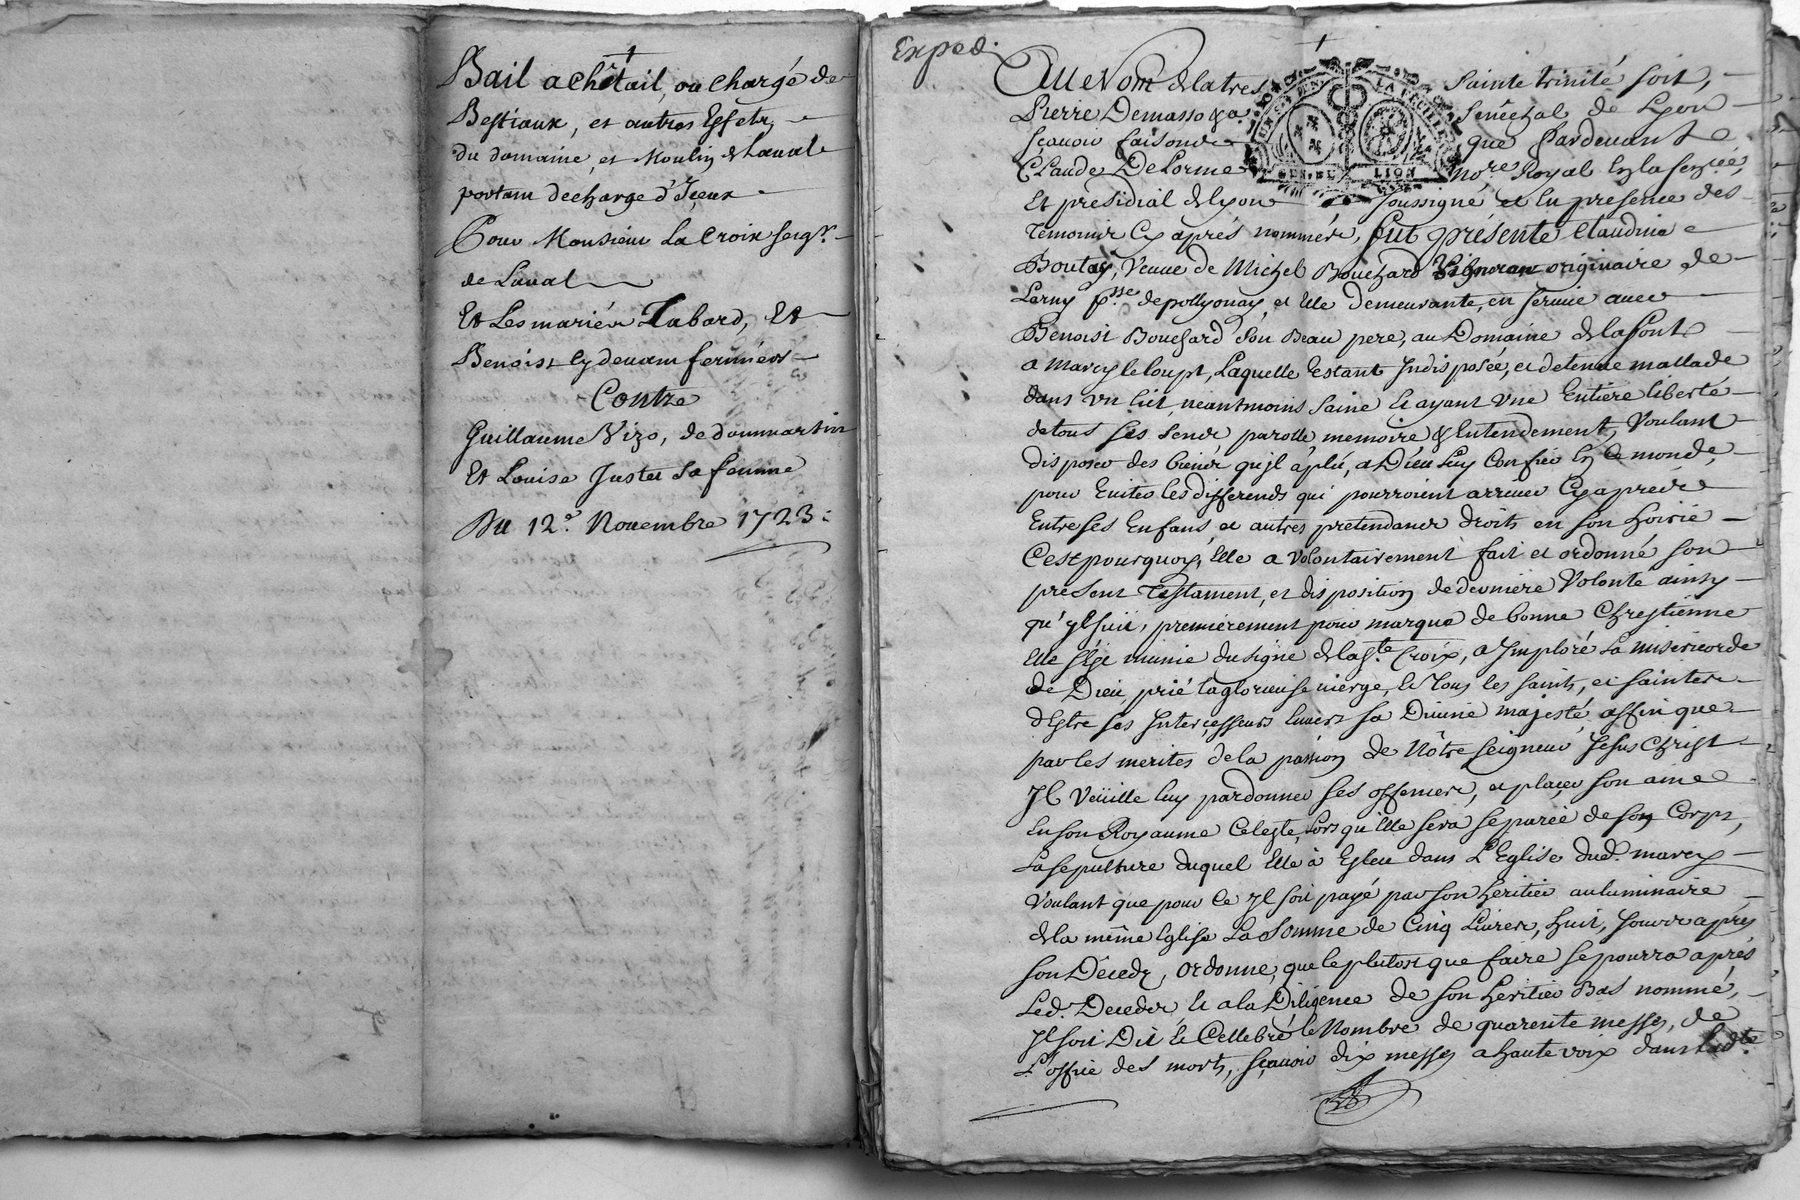 Bail a chêtail, ou chargé de
Bestiaux, et autres Effets,
du domaine, et Moulin de Laval
portant decharge d'Iceux
Pour Monsieur La Croix seigr.
de Laval
Et Les mariés Tabard, Et
Benoist cy devant fermiers
Contre
Guillaume Vizo, de dommartin
Et Louise Juster sa femme
Du 12e. Novembre 1723.
Exped.
Au Nom de la tres sainte trinité soit,
Pierre Demasso sénéchal de Lyon
sçavoir faisons que Pardevant
Claude DeLorme nore. Royal en la senéé
GEN. DE LION
Et presidial de lyon soussigné et en presence des
temoins cy aprés nommés, fut présente Claudine
Boutay, veuve de Michel Bouchard originaire de
Larny psse. de pollyonay, et Elle demeurante, en service avec
Benoist Bouchard son Beau pere, au Domaine de la font
a Marcy le loup, Laquelle Estant Indisposée, et detenue mallade
dans un lict, neantmoins saine et ayant une Entiere liberté
de tous ses sens, parolle, memoire & Entendement, Voulant
disposer des biens qu'jl a plû, a Dieu Luy Confier en ce monde,
pour Eviter les differends qui pourroient arriver Cy apres
Entre ses Enfans, et autres pretendans droits en son hoirie
C'est pourquoy, Elle a Volontairement fait et ordonné son
present Testament, et disposition de derniere Volonté ainsy
qu'yl suit, premierement pour marque de bonne Chrestienne
Elle s'est munie du signe de la Ste. Croix, a Imploré La misericorde
de Dieu, prié la glorieuse vierge, et Tous les saints, et saintes
d'Estre ses Intercesseurs Envers sa Divine majesté affin que
par les merites de la passion de Nôtre seigneur Jesus Christ
Il Veüille luy pardonner ses offenses, et placer son ame
En son Royaume Celeste, Lors qu'Elle sera separée de son Corps,
La sepulture duquel Elle à Esleu dans L'Eglise dud. marcy
Voulant que pour ce Il soit payé par son heritier au luminaire
de la même Eglise La somme de Cinq Livres, huit, jours aprés
son Décedz, ordonne, que le plutost que faire se pourra aprés
Led. Decedz, et a la Diligence de son heritier Bas nommé,
Il soit Dit et Cellebré le Nombre de quarente messes, de
L'office des morts, sçavoir dix messes a haute voix dans Ladte.